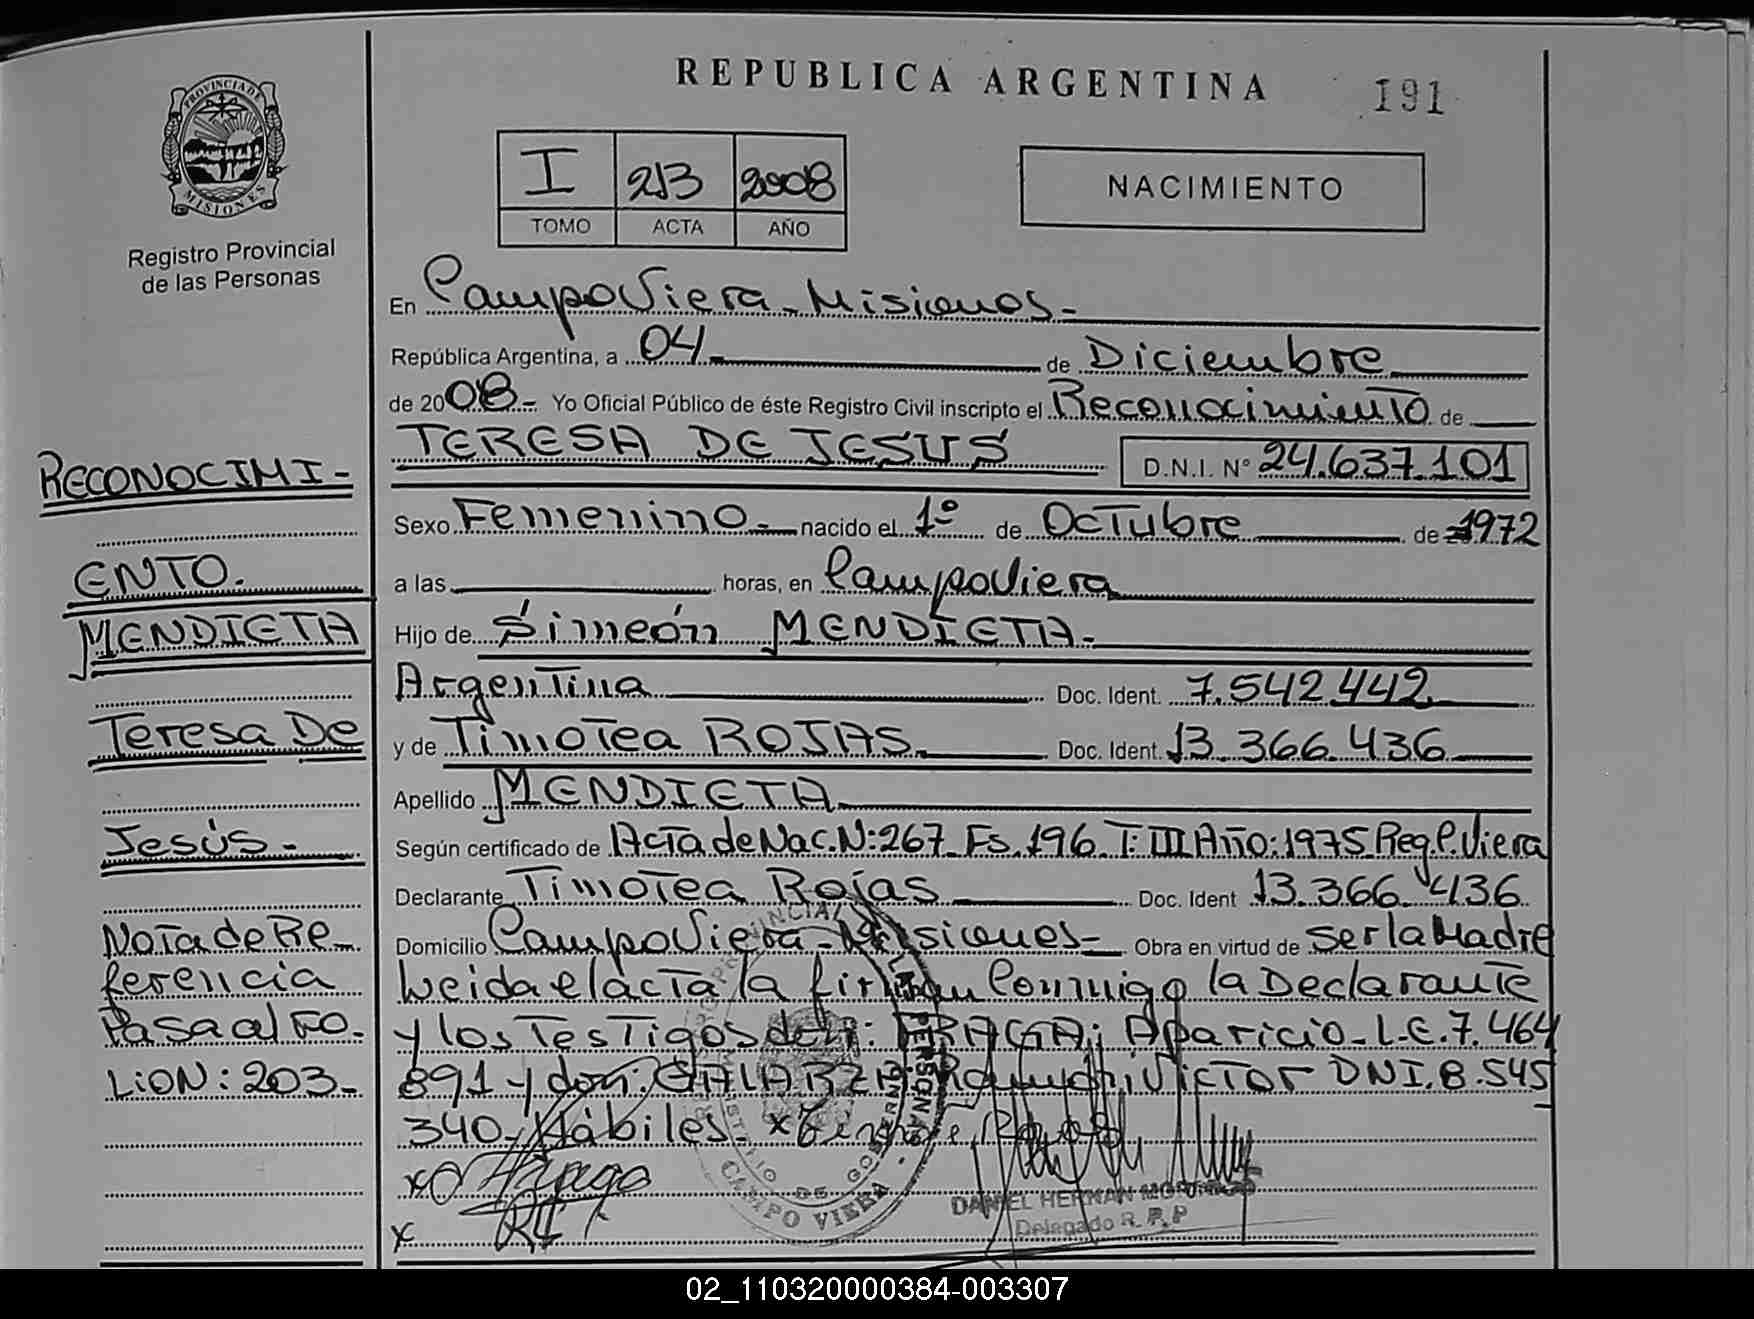 REPUBLICA ARGENTINA
191
PROVINCIA DE
MISIONES
Registro Provincial
de las Personas
I 213 2008
TOMO ACTA AÑO
NACIMIENTO
En Campo Viera - Misiones -
República Argentina, a 04 - de Diciembre
de 2008 - Yo Oficial Público de éste Registro Civil inscripto el Reconocimiento de
TERESA DE JESUS D.N.I. Nº 24.637.101
Sexo Femenino - nacido el 1º de Octubre de 1972
a las horas, en Campo Viera
Hijo de Simeón MENDIETA -
Argentina Doc. Ident. 7.542.442
y de Timotea ROJAS - Doc. Ident. 13.366.436
Apellido MENDIETA
Según certificado de Acta de Nac. N: 267 Fs. 196 T: III Año: 1975 Reg. C. Viera
Declarante Timotea Rojas Doc. Ident 13.366.436
Domicilio Campo Viera - Misiones - Obra en virtud de ser la Madre
Leida el acta la firman Conmigo la Declarante
y los Testigos Aparicio - L.E. 7.464
891 y don: GALARZA: Ramón Victor DNI. 8.545
340 - Hábiles.
DANIEL HERNAN
Delegado R. P. P
CAMPO VIERA
RECONOCIMI -
ENTO.
MENDIETA
Teresa De
Jesús -
Nota de Re
ferencia
Pasa al FO -
LION: 203 -
02_110320000384-003307